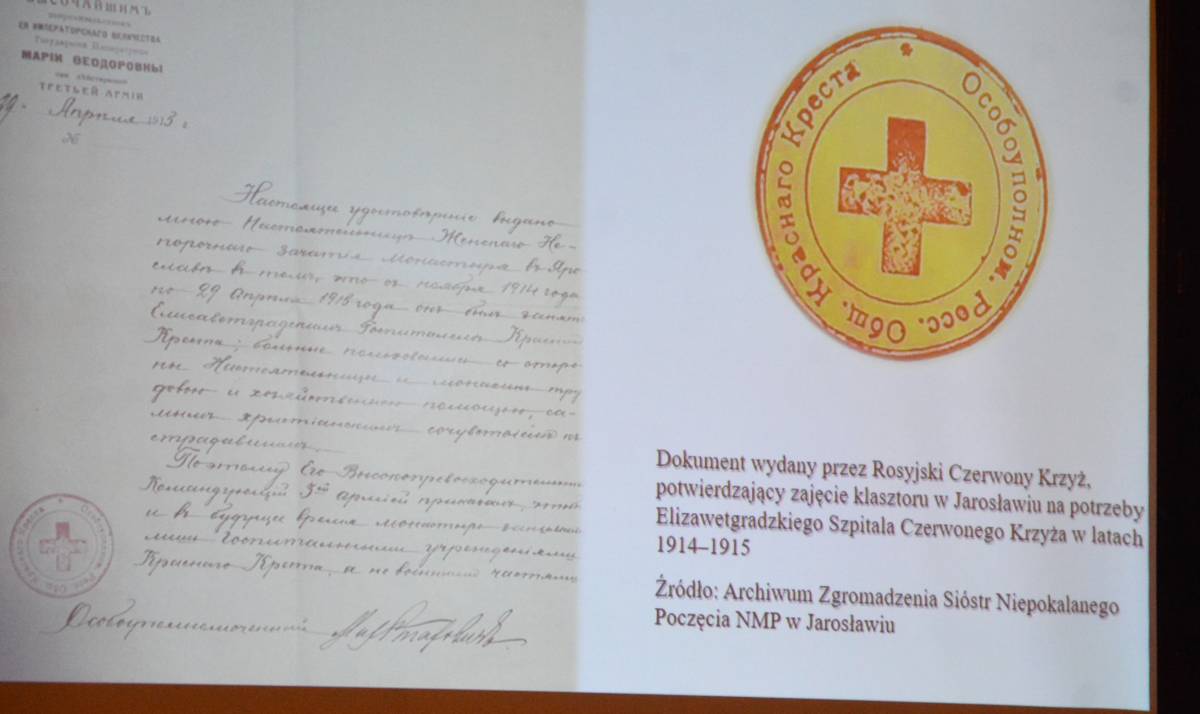 ВЫСОЧАЙШИМЪ
покровительствомъ
ЕЯ ИМПЕРАТОРСКАГО ВЕЛИЧЕСТВА
Государыни Императрицы
МАРІИ ѲЕОДОРОВНЫ
при дѣйствующей
ТРЕТЬЕЙ АРМІИ
29 Апрѣля 1915 г.
№
Настоящее удостовѣреніе выдано
мною Настоятельницѣ Женскаго Не-
порочнаго Зачатія монастыря въ Яро-
славѣ въ томъ, что съ ноября 1914 года
по 29 Апрѣля 1915 года онъ былъ занятъ
Елисаветградскимъ Госпиталемъ Краснаго
Креста; больные пользовались со сторо-
ны Настоятельницы и монахинь тру
довою и хозяйственною помощью, са-
мымъ христіанскимъ сочувствіемъ къ
страдавшимъ.
Поэтому Его Высокопревосходительство
Командующій 3ей арміей приказалъ, чтобы
и въ будущее время монастырь
лишь Госпитальными учрежденіями
Краснаго Креста, а не воинскими частями
Особоуполномоченный
Особоуполном. Росс. Общ. Краснаго Креста
Особоуполном. Росс. Общ. Краснаго Креста
Dokument wydany przez Rosyjski Czerwony Krzyż,
potwierdzający zajęcie klasztoru w Jarosławiu na potrzeby
Elizawetgradzkiego Szpitala Czerwonego Krzyża w latach
1914–1915
Źródło: Archiwum Zgromadzenia Sióstr Niepokalanego
Poczęcia NMP w Jarosławiu